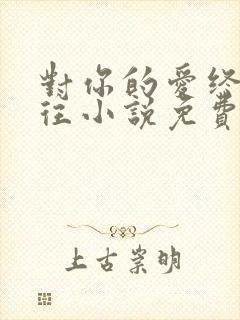 對你的愛終
往小說免費
上古崇明